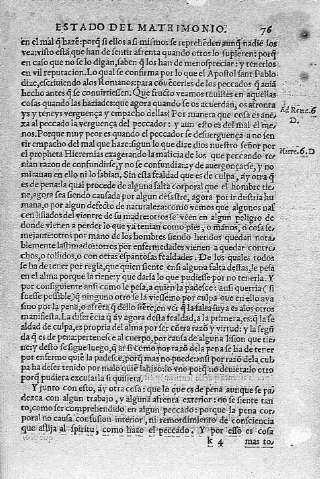 ESTADO DEL MATRIMONIO. 76
en el mal q̃ haze: porq̃ si ellos a si mismos se reprehẽden aunq̃ nadie los
vea: visto está que han de sentir afrenta quando otros lo supieren: porq̃
en caso que no se lo digan, saben q̃ los han de menospreciar: y tenerlos
en vil reputacion. Lo qual se confirma por lo que el Apostol sant Pablo
dize, escriuiendo a los Romanos: para
hecho antes q̃ se conuirtiessen. Que fructo
cosas quando las haziades: que agora quando se os acuerdan, os afronta
ys y teneys verguença y empacho dellas? Por manera que cosa es ane
xa al peccado la verguença del peccador: y aun esto es del mal el me
nos. Porque muy peor es quando el peccador se desuerguença a no sen
tir empacho del mal que haze: segun lo que dize dios nuestro señor por
el propheta Hieremias exagerando la malicia de los que peccando te
nian razon de confundirse, y no se confundian
mirauan en ello ni lo sabian. Sin esta fealdad que es de culpa, ay otra q̃
es de pena: la qual procede de alguna falta corporal que el hombre tie
ne, agora sea siendo causada por algun desastre, agora por
mana, o por algun defecto de naturaleza: como vemos que algunos na
cen del vientre de su madre: otros se veen en algun peligro de
donde vienen a perder lo que ya tenian como pies, o manos, o cosa se
mejante: otros por mano de los hombres siendo heridos quedan nota
blemente lastimados: otros por enfermedades vienen a quedar contre
chos, o tollidos, o con otras espantosas fealdades. De los quales todos
se ha de tener por regla, que quien siente en si alguna falta destas, le pesa
en el alma porque la tiene: y que daria lo que pudiesse por no tenerla. Y
por consiguiente assi como le pesa, a quien la padesce: assi querria (si
fuesse possible) q̃ ninguno otro se la viesse: no por culpa que en ello aya
sino por la pena,
manifiesta. La differẽcia q̃ ay agora desta fealdad, a la primera, es q̃ la fe
aldad de culpa, es propria del alma por ser cõtra razõ y virtud: y la segũ
da q̃ es de pena: pertenesce al cuerpo, por causa de alguna lision que tie
ne: y desto se sigue luego, q̃ assi como por razõ
por enfermo quiẽ la padesce, por razõ dela cul
pa ha de ser tenido por malo
porq̃ pudiera excusarla si quisiera.
Y junto con esto, ay otra cosa: que lo que es de pena aunque se pa
dezca con algun trabajo, y alguna afrenta exterior: no se siente tan
to, como ser comprehendido en algun peccado: porque la pena cor
poral no causa confusion interior, ni remordimiento de consciencia
que aflija al spiritu, como haze el peccado. Y por esso es cosa
k 4 mas to,
6
D.
6.D